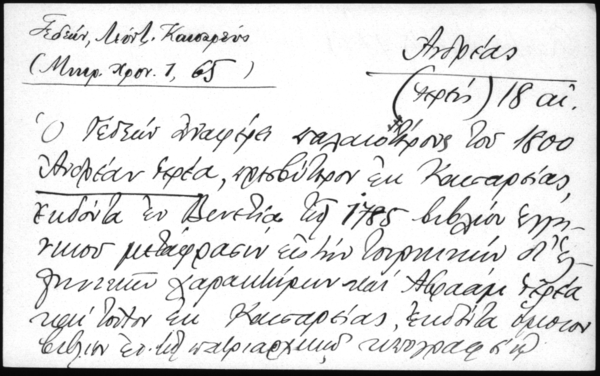 Γεδεών, Λεόντ. Καισαρεύς
(Μικρ. Χρον. 1, 65)
Ἀνδρέας
(ἱερεύς) 18 αἰ.
Ὁ Γεδεών ἀναφέρει παλαιοτέρους τοῦ 1800
Ἀνδρέαν ἱερέα, πρεσβύτερον ἐκ Καισαρείας,
ἐκδόντα ἐν Βενετίᾳ τῷ 1785 βιβλίον ἑλλη-
νικοῦ μετάφρασιν εἰς τήν τουρκικήν δι' ἑλ-
ληνικῶν χαρακτήρων καί Ἀβραάμ ἱερέα
καί τοῦτον ἐκ Καισαρείας, ἐκδόντα ὅμοιον
βιβλίον ἐν τῷ πατριαρχικῷ τυπογραφείῳ